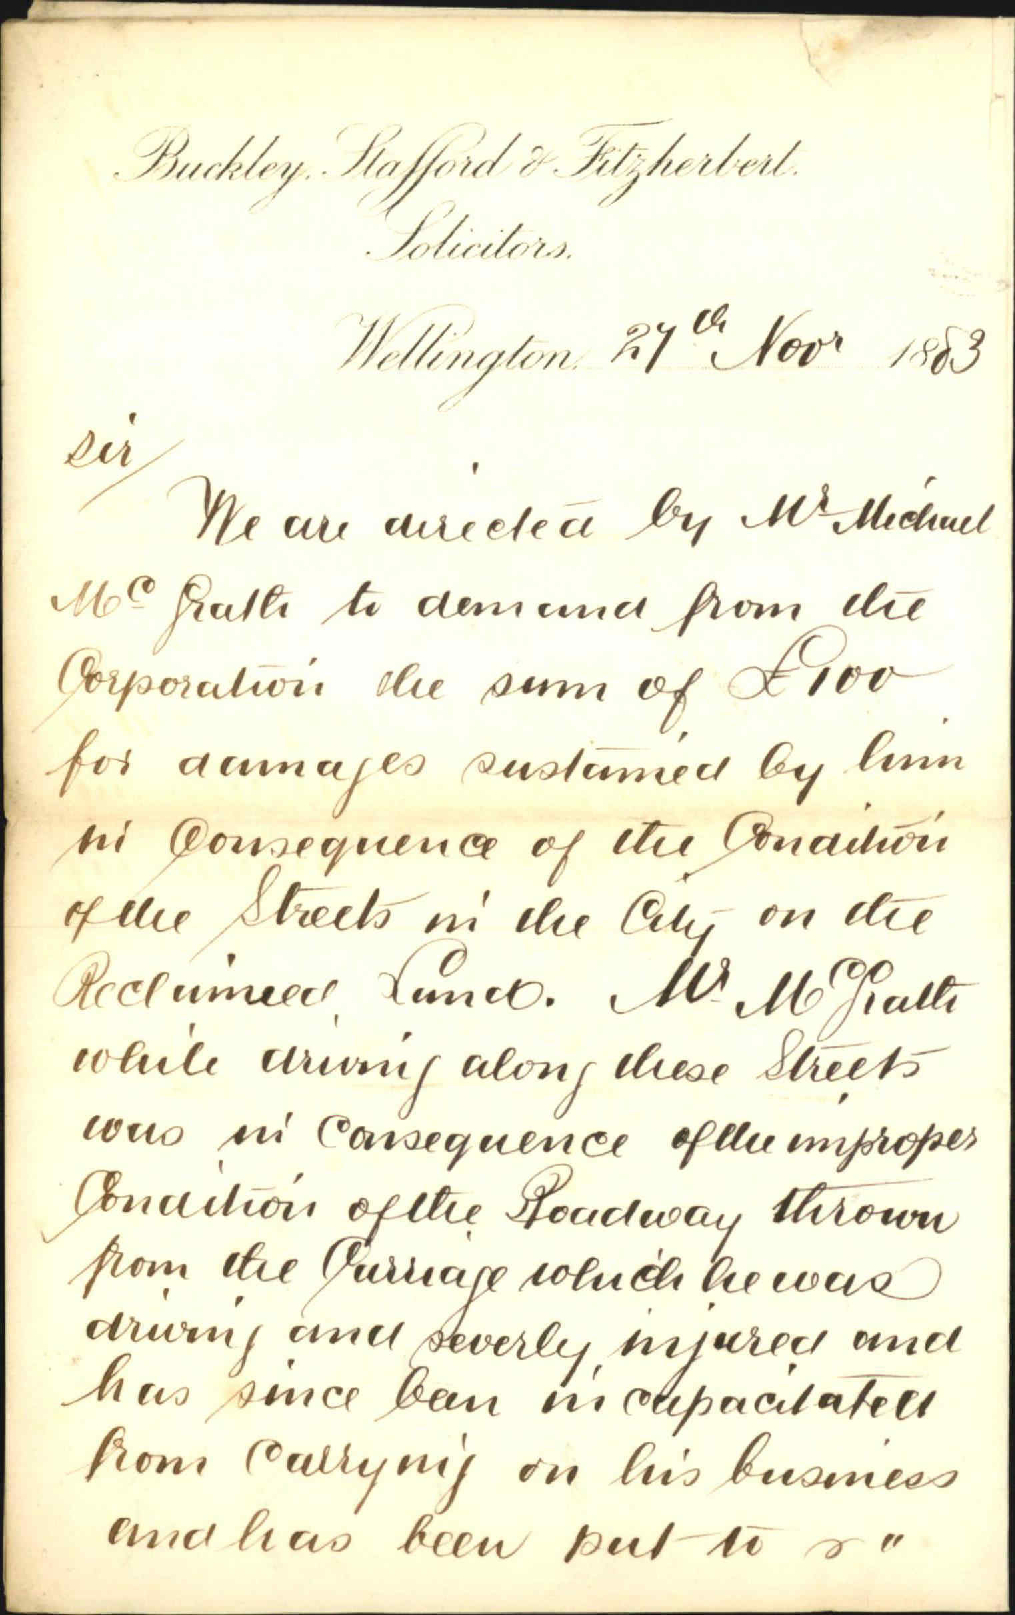 Buckley, Stafford & Fitzherbert.
Solicitors.
Wellington, 27th Novr 1883
Sir/
We are directed by Mr Michael
McGrath to demand from the
Corporation the sum of £100
for damages sustained by him
in Consequence of the Condition
of the Streets in the City on the
Reclaimed Land. Mr McGrath
while driving along these Streets
was in consequence of the improper
Condition of the Roadway thrown
from the Carriage which he was
driving and severly injured and
has since been incapacitated
from carrying on his business
and has been put to